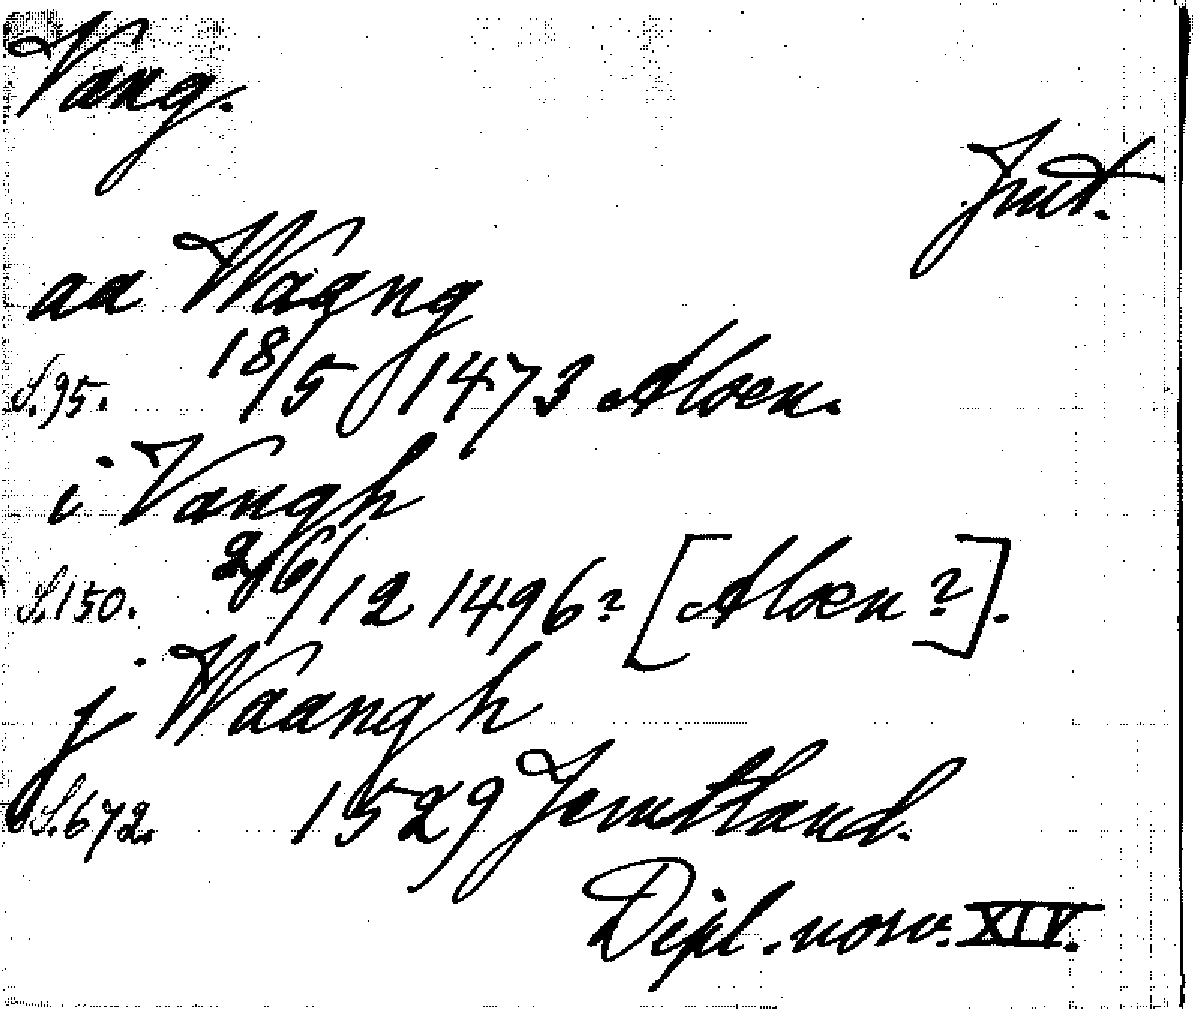 Vang.
Jmt.
aa Waang
S. 95. 18/5 1473 Aloen.
i Vangh
S. 150. 26/12 1496? [Aloen?].
j Waangh
S. 672. 1529 Jemtland.
Dipl. norv. XIV.